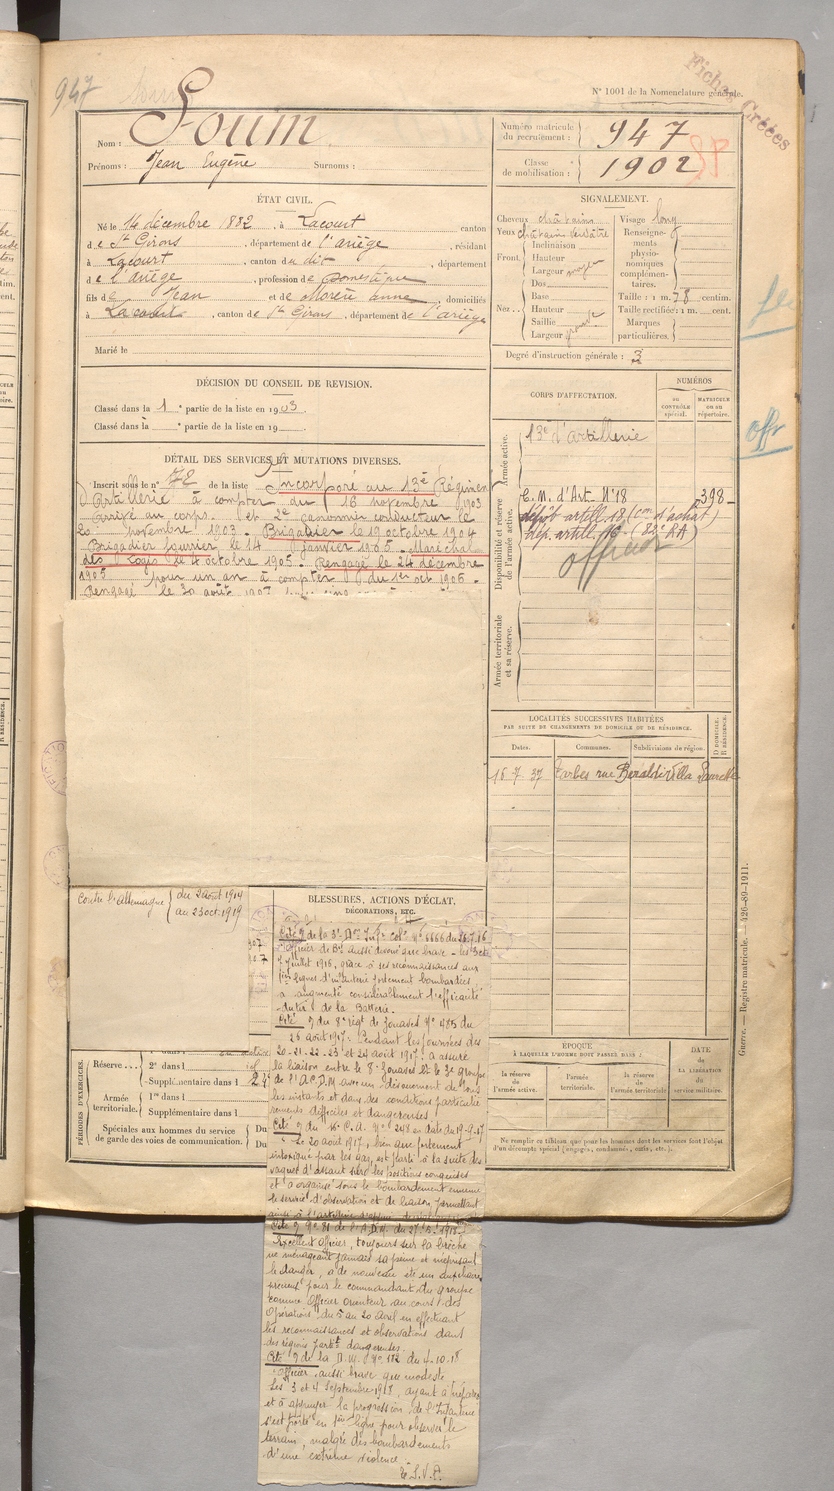 947
N° 1001 de la Nomenclature générale.
Fiches Créées
Nom : Souin
Prénoms : Jean Eugène Surnoms :
Numéro matricule du recrutement : 947
Classe de mobilisation : 1902
ÉTAT CIVIL.
Né le 14 décembre 1882, à Lacourt canton
de St Girons, département de l'ariège, résidant
à Lacourt, canton du dit, département
de l'ariège, profession de Domestique
fils de Jean et de anne, domiciliés
à Lacourt, canton de St Girons, département de l'ariège
Marié le
SIGNALEMENT.
Cheveux châtains Visage long
Yeux châtain verdâtre Renseignements physionomiques complémentaires.
Front. Inclinaison
Hauteur
Largeur moyen
Nez. Dos
Base
Hauteur
Saillie
Largeur
Taille : 1 m. 78 centim.
Taille rectifiée : 1 m. cent.
Marques particulières.
Degré d'instruction générale : 3
DÉCISION DU CONSEIL DE REVISION.
Classé dans la 1e partie de la liste en 1903.
Classé dans la e partie de la liste en 19
DÉTAIL DES SERVICES ET MUTATIONS DIVERSES.
Inscrit sous le n° 72 de la liste Incorporé au 13e Régiment
d'Artillerie à compter du 16 novembre 1903
Arrivé au corps et 2e canonnier conducteur le
novembre 1903. Brigadier le 19 octobre 1904
Brigadier fourrier le 14 janvier 1905. Maréchal
des Logis le 4 octobre 1905. Rengagé le 24 décembre
1905 pour un an à compter du 1er oct 1906.
Rengagé le 30 août
CORPS D'AFFECTATION.
NUMÉROS
au CONTRÔLE spécial.
MATRICULE ou au répertoire.
Armée active.
13e d'artillerie
Disponibilité et réserve de l'armée active.
C. M. d'Art. N°18 398
dépôt artill. 18 (Cm d'achat)
officier
Armée territoriale et sa réserve.
LOCALITÉS SUCCESSIVES HABITÉES
PAR SUITE DE CHANGEMENTS DE DOMICILE OU DE RÉSIDENCE.
Dates. Communes. Subdivisions de région. D DOMICILE. R RÉSIDENCE.
16 7 37 Tarbes rue Beraldi Villa
contre l'allemagne du 2 août 1914
au 23 oct. 1919
BLESSURES, ACTIONS D'ÉCLAT,
DÉCORATIONS, ETC.
"Officier de Bie aussi dévoué que brave
juillet 1916, grâce à ses reconnaissances aux
lignes d'infanterie fortement bombardées
a augmenté considérablement l'efficacité
du tir de la Batterie.
Cité du 8e régt de Zouaves N° 485 du
26 août 1917. Pendant les journées des
20-21-22-23 et 24 août 1917, a assuré
la liaison entre le 8e Zouaves et le 3e groupe
de l'A.C.D.M. avec un dévouement de tous
les instants et dans des conditions particulièrement
difficiles et dangereuses
Cité du C.A. N° 248 en date du 19-9-17
"Le 20 août 1917, bien que fortement
intoxiqué par les gaz, est parti à la suite des
vagues d'assaut sur les positions conquises
et a organisé sous le bombardement ennemi
le service d'observation et de liaison permettant
Cité N° 81 de l'A.D.M. du 27-5-1918.
"Excellent officier, toujours sur la brèche
ne ménageant jamais sa peine et méprisant
le danger, a de nouveau été un auxiliaire
précieux pour le commandant du groupe
comme Officier orienteur au cours des
Opérations du 5 au 20 Avril en effectuant
les reconnaissances et observations dans
des régions partic. dangereuses.
Cité de la D.M. N° 112 du 4-10-18
"Officier aussi brave que modeste
Les 3 et 4 Septembre 1918, ayant à préparer
et à appuyer la progression de l'Infanterie
s'est porté en 1ère ligne pour observer le
terrain, malgré des bombardements
d'une extrême violence
T.S.V.P.
PÉRIODES D'EXERCICES.
Réserve... 1re dans l
2e dans l
Supplémentaire dans l
Armée territoriale. 1re dans l
Supplémentaire dans l
Spéciales aux hommes du service
de garde des voies de communication. Du
Du
ÉPOQUE
À LAQUELLE L'HOMME DOIT PASSER DANS :
la réserve de l'armée active. l'armée territoriale. la réserve de l'armée territoriale.
DATE DE LA LIBÉRATION du service militaire.
Ne remplir ce tableau que pour les hommes dont les services font l'objet
d'un décompte spécial (engagés, condamnés, omis, etc.
Guerre. — Registre matricule. — 426-89-1911.